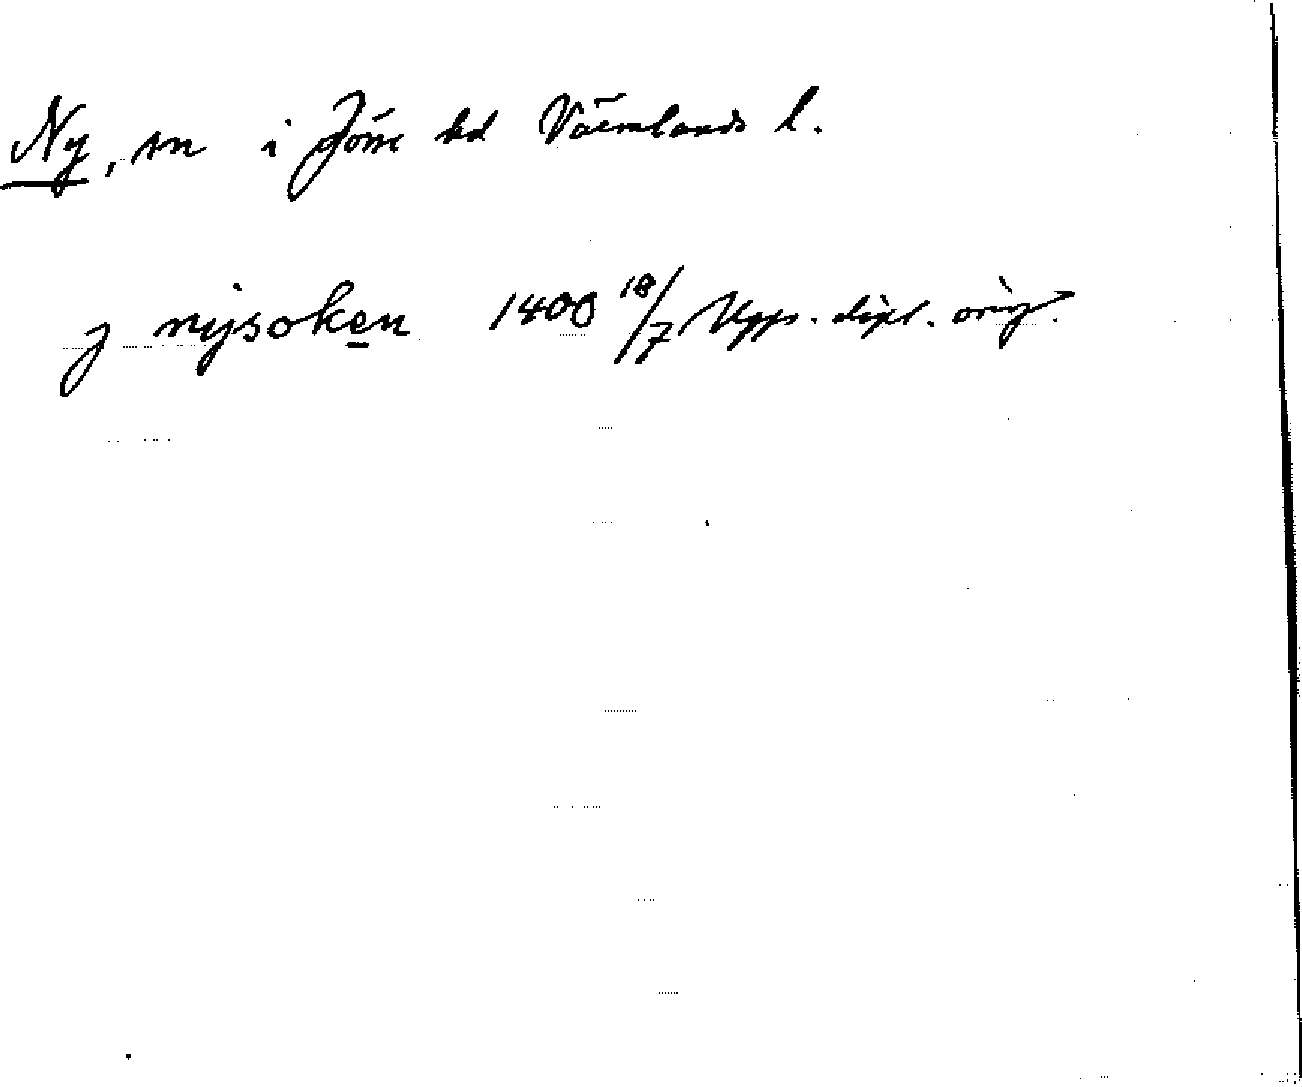 Ny, sn i Jösse hd Värmlands l.
j nysoken 1400 18/7 Upps. dipl. orig.